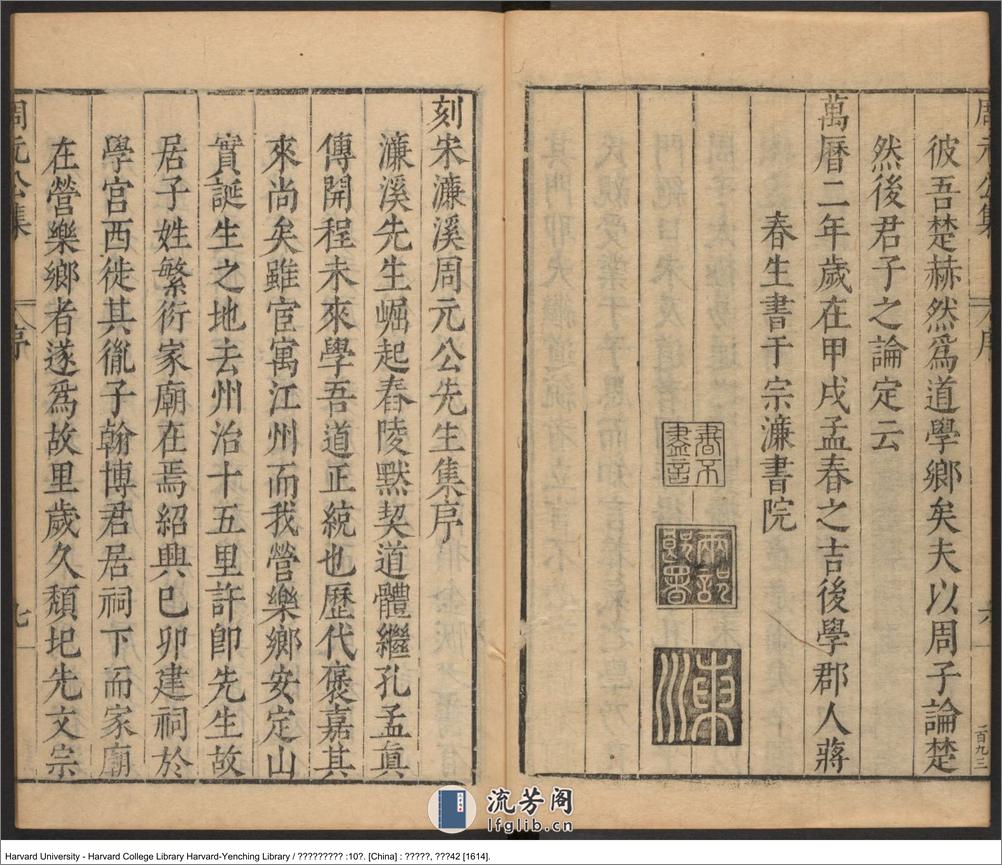 彼吾楚赫然爲道學鄉矣夫以周子論楚
然後君子之論定云
萬曆二年歲在甲戌孟春之吉後學郡人蔣
春生書于宗濂書院
書不
盡言
東
川
周元公集
序
六
一百九三
刻宋濂溪周元公先生集序
濂溪先生崛起舂陵默契道體繼孔孟眞
傳開程朱來學吾道正統也歷代褒嘉其
來尚矣雖宦寓江州而我營樂鄉安定山
實誕生之地去州治十五里許卽先生故
居子姓繁衍家廟在焉紹興己卯建祠於
學宮西徙其胤子翰博君居祠下而家廟
在營樂鄉者遂爲故里歲久頹圮先文宗
周元公集
序
七
流芳阁
lfglib.cn
Harvard University - Harvard College Library Harvard-Yenching Library / ????????? :10?. [China] : ?????, ???42 [1614].